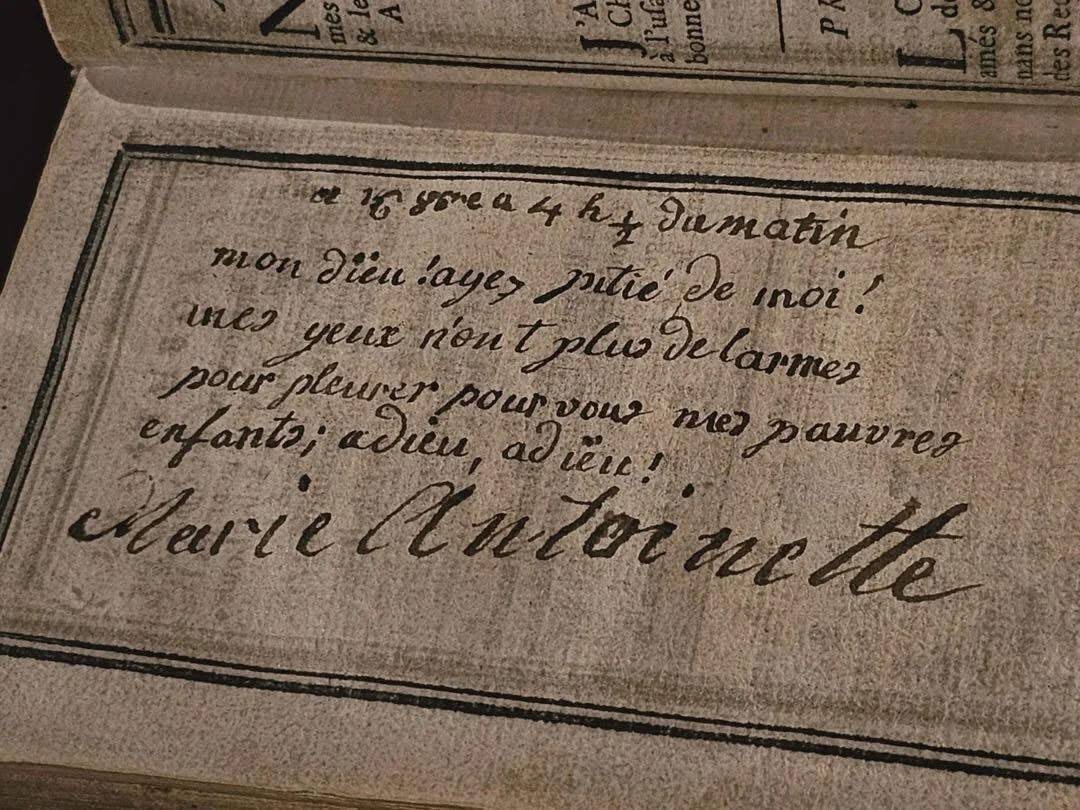 N
mes
& le
A
J'A
Ch
à l'usa
bonne
PR
L
de
amés &
nans no
des Re
ce 16 8bre a 4 h ½ du matin
mon dïeu !ayez pitié de moi !
mes yeux n'ont plus de larmes
pour pleurer pour vous mes pauvres
enfants; adieu, adïeu!
Marie Antoinette